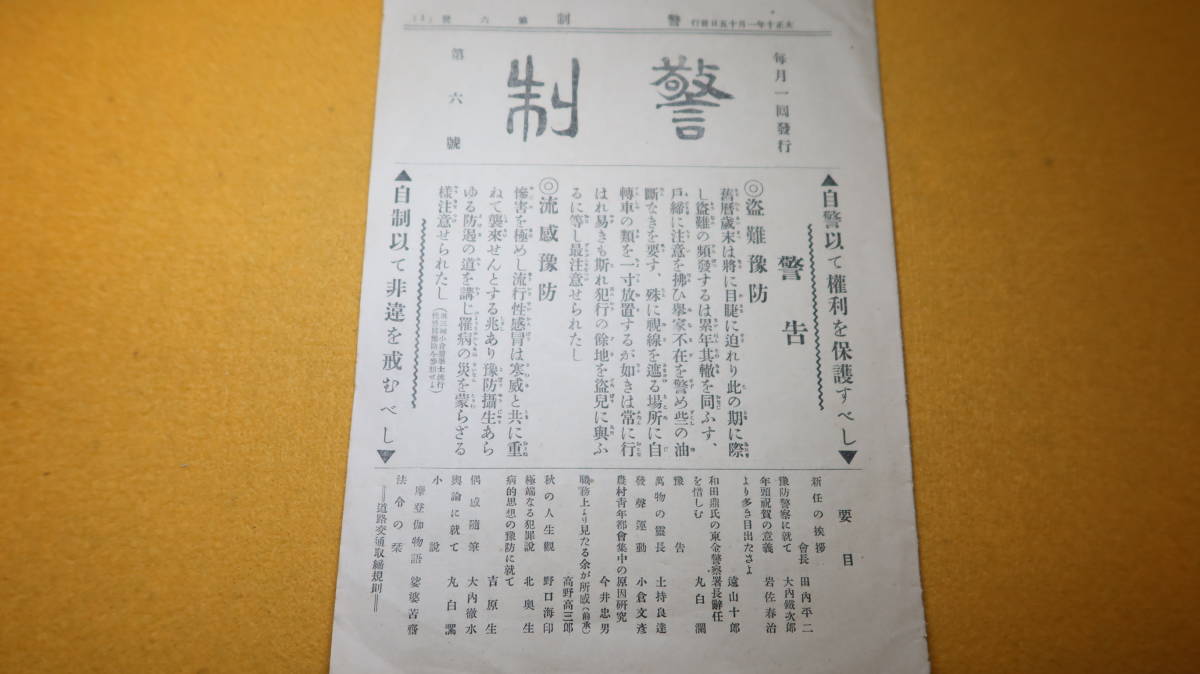 大正十年一月十五日發行　警制　第六號　（1）
每月一回發行
警制
第六號
▲自警以て權利を保護すべし▼
警告
◎盜難豫防
舊曆歲末は將に目睫に迫れり此の期に際
し盜難の頻發するは累年其轍を同ふす、
戶締に注意を拂ひ擧家不在を警め些の油
斷なきを要す、殊に視線を遮る場所に自
轉車の類を一寸放置するが如きは常に行
はれ易きも斯れ犯行の餘地を盜兒に與ふ
るに等し最注意せられたし
◎流感豫防
慘害を極めし流行性感冒は寒威と共に重
ねて襲來せんとする兆あり豫防攝生あら
ゆる防遏の道を講じ罹病の災を蒙らざる
樣注意せられたし
▲自制以て非違を戒むべし▼
要目
新任の挨拶　會長　田内平二
豫防警察に就て　大内鐵次郎
年頭祝賀の意義　岩佐春治
より多き目出たさよ　遠山十郎
和田鼎氏の東金警察署長辭任
を惜しむ　丸白瀾
豫告
萬物の靈長　土持良達
發聲運動　小倉文彥
農村靑年都會集中の原因硏究
今井忠男
職務上より見たる余が所感（前承）
高野高三郎
秋の人生觀　野口海印
極端なる犯罪說　北奥生
病的思想の豫防に就て
吉原生
偶感隨筆　大内徹水
輿論に就て　丸白瀾
小說
摩登伽物語　娑婆苦齋
法令の栞
━━道路交通取締規則━━